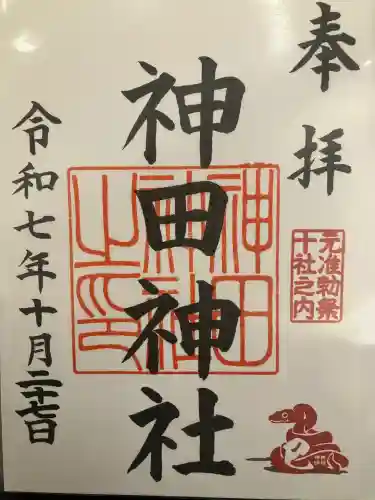 奉拝
元准勅祭
十社之内
神田神社
神田神社之印
令和七年十月二十七日